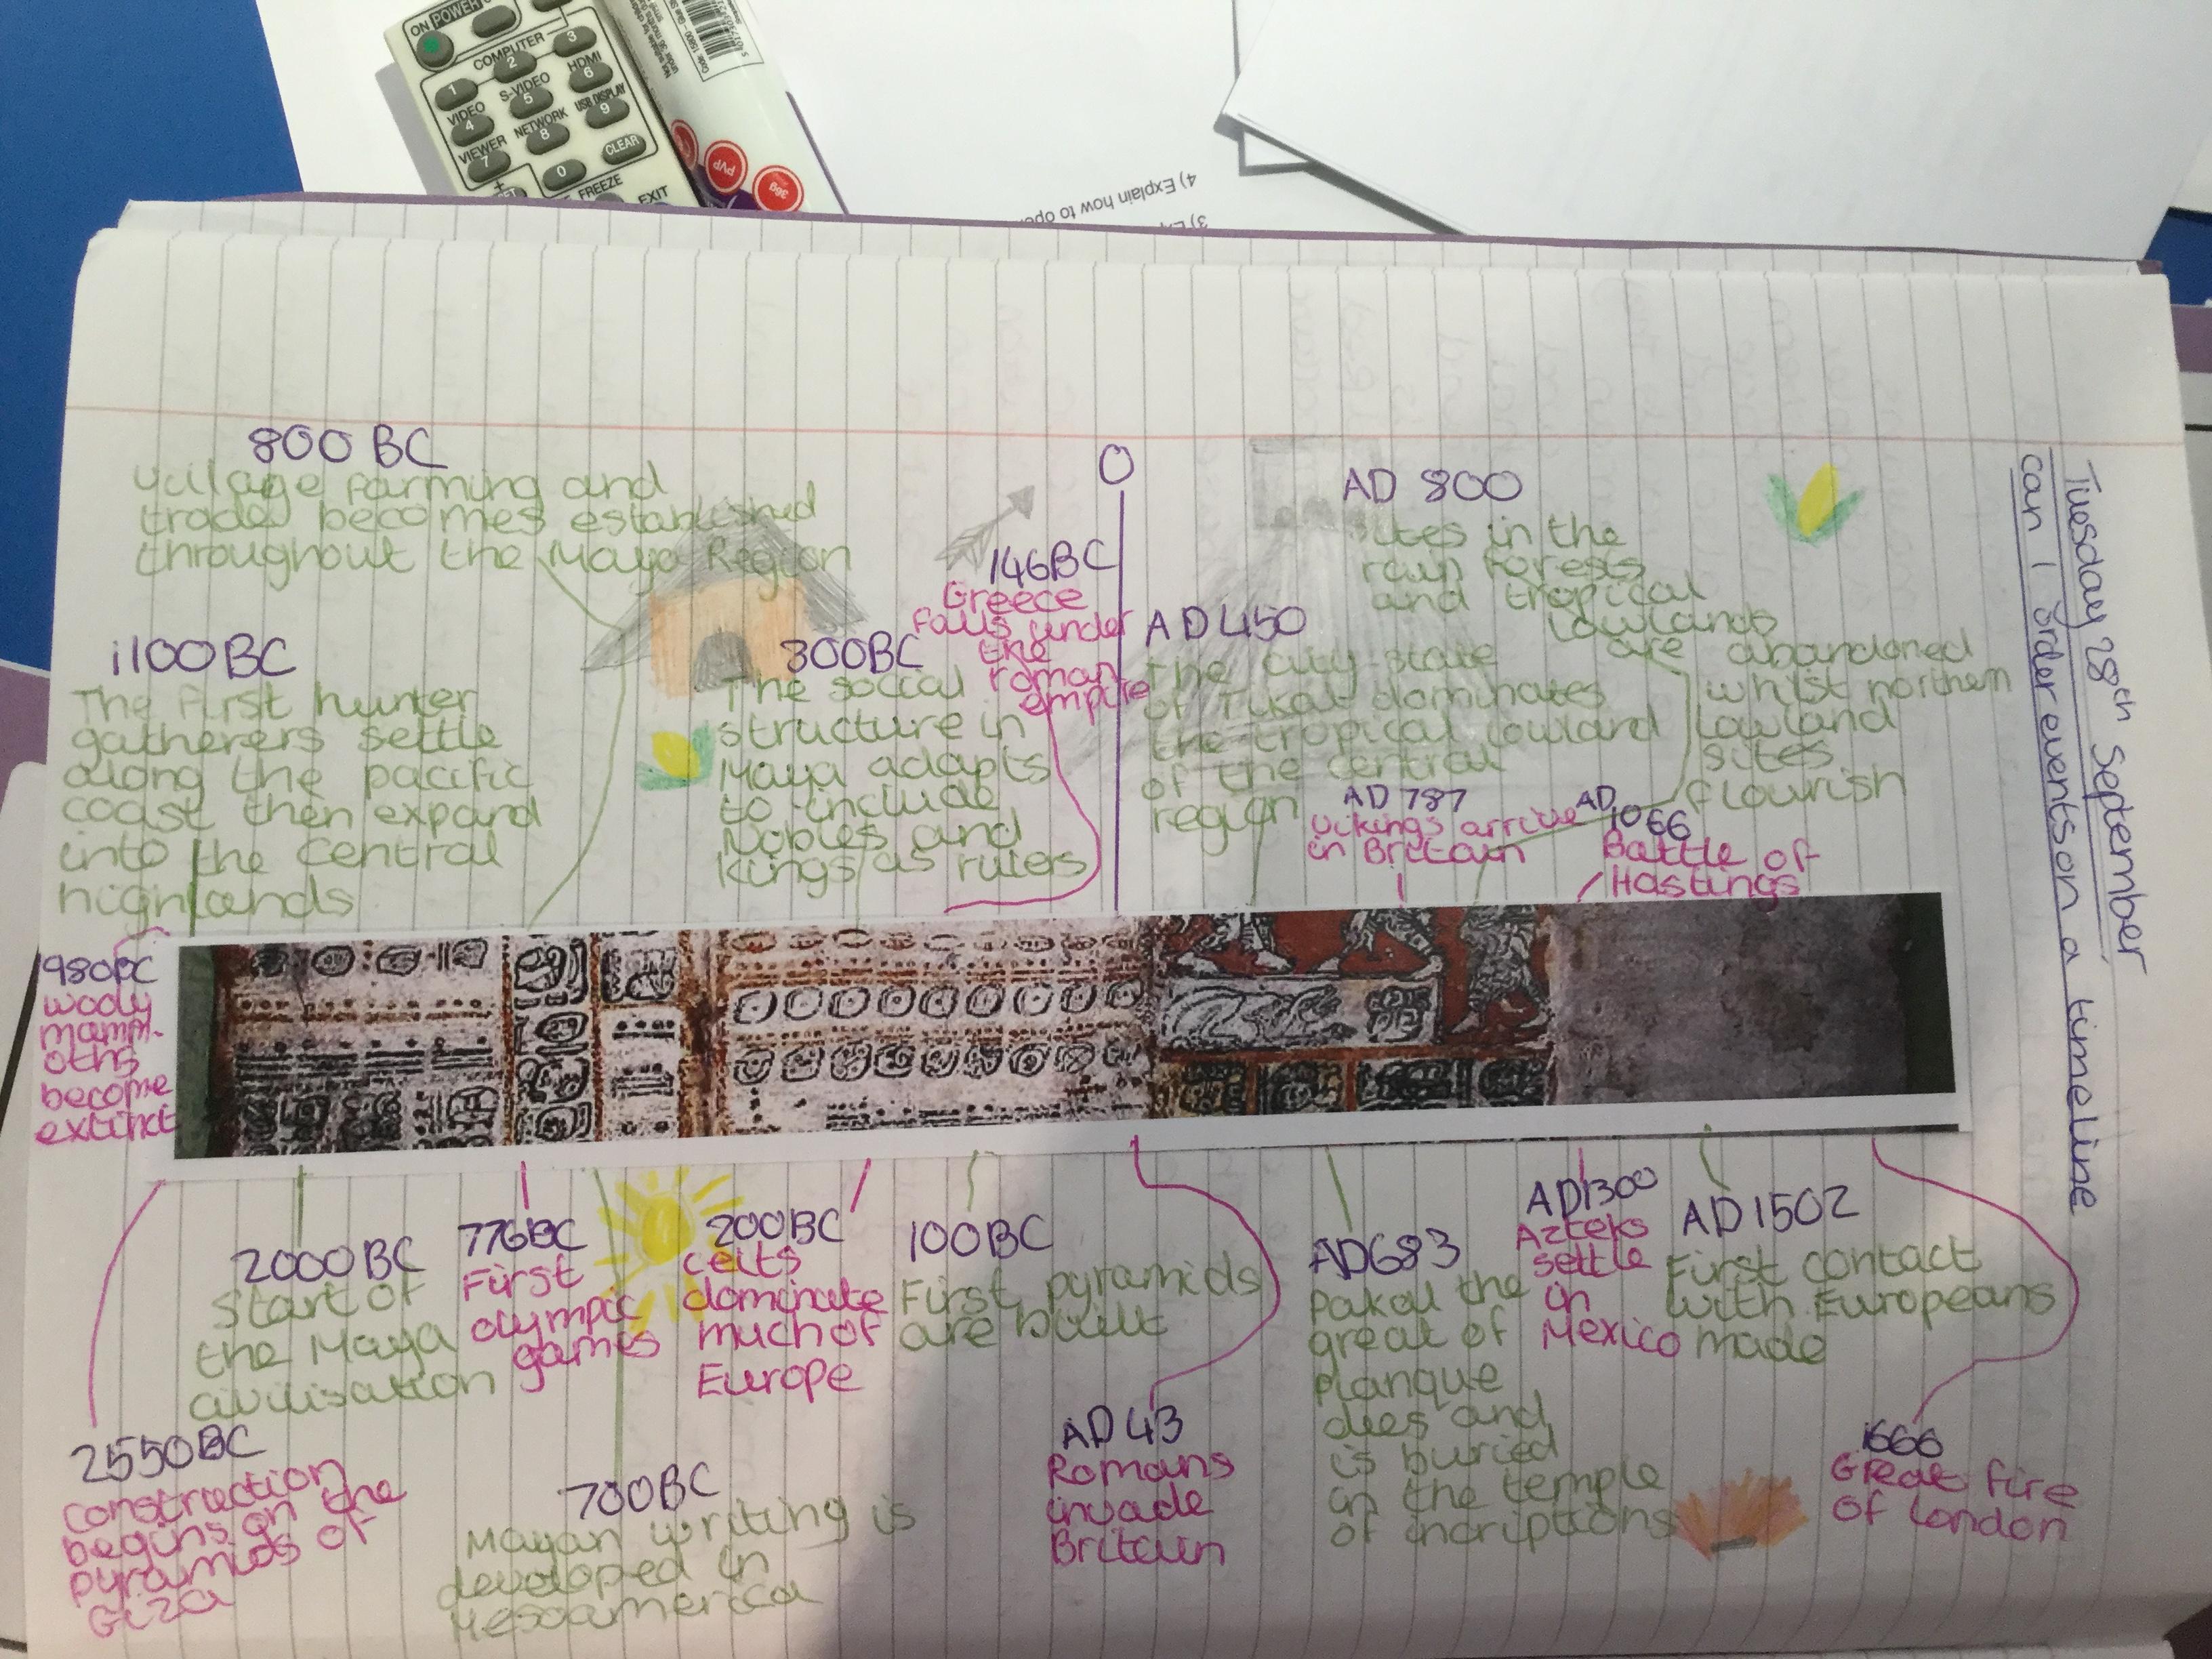 ON POWER
COMPUTER
1 2 3
VIDEO S-VIDEO HDMI
4 5 6
VIEWER NETWORK USB DISPLAY
7 8 9
0 CLEAR
FREEZE
EXIT
PVP
36g
4) Explain how to ope
Tuesday 28th September
can I order events on a timeline
800 BC
village farming and
trade becomes established
throughout the Maya Region
1100 BC
The first hunter
gatherers settle
along the pacific
coast then expand
into the central
highlands
300BC
The social
structure in
Maya adapts
to include
Nobles and
kings as rulers
146BC
Greece
falls under
the
roman
empire
0
AD 450
The city-state
of Tikal dominates
the tropical lowland
of the central
region
AD 800
sites in the
rain forests
and tropical
lowlands
are abandoned
whilst northern
lowland
sites
flourish
AD 787
Vikings arrive
in Britain
AD
1066
Battle of
Hastings
1980BC
wooly
mamm-
oths
become
extinct
2550BC
construction
begins on the
pyramids of
Giza
2000BC
Start of
the Maya
civilisation
776BC
First
olympic
games
700BC
Mayan writing is
developed in
Mesoamerica
200BC
celts
dominate
much of
Europe
100BC
First pyramids
are built
AD 43
Romans
invade
Britain
AD683
Pakal the
great of
Planque
dies and
is buried
in the temple
of incriptions
AD1300
Azteks
settle
in
Mexico
AD 1502
First contact
with Europeans
made
1666
Great fire
of London